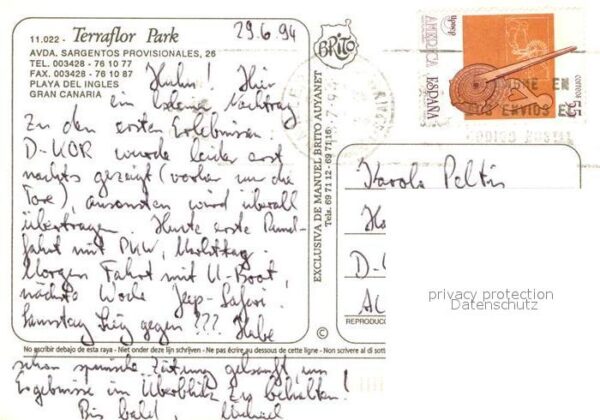 11.022 - Terraflor Park
AVDA. SARGENTOS PROVISIONALES, 26
TEL. 003428 - 76 10 77
FAX. 003428 - 76 10 87
PLAYA DEL INGLES
GRAN CANARIA
29.6.94
Huhu! Hier
ein kleiner Nachtrag
zu den ersten Erlebnissen.
D-KOR wurde leider erst
nachts gezeigt (vorher nur die
Tore), ansonsten wird überall
übertragen. Heute erste Rund-
fahrt mit PKW, Markttag.
Morgen Fahrt mit U-Boot,
nächste Woche Jeep-Safari.
Samstag Sieg gegen ??? Habe
No escribir debajo de esta raya - Niet onder deze lijn schrijven - Ne pas écrire au dessous de cette ligne - Non scrivere al di sotto
schon spanische Zeitung gekauft, um
Ergebnisse im Überblick zu behalten!
Bis bald, Michael
BRITO
EXCLUSIVA DE MANUEL BRITO AUYANET
Tels. 69 71 12 - 69 71 16
©
REPRODUCC
UPAEP
AMERICA
ESPAÑA
CORREOS
55
Karola
D-
privacy protection
Datenschutz